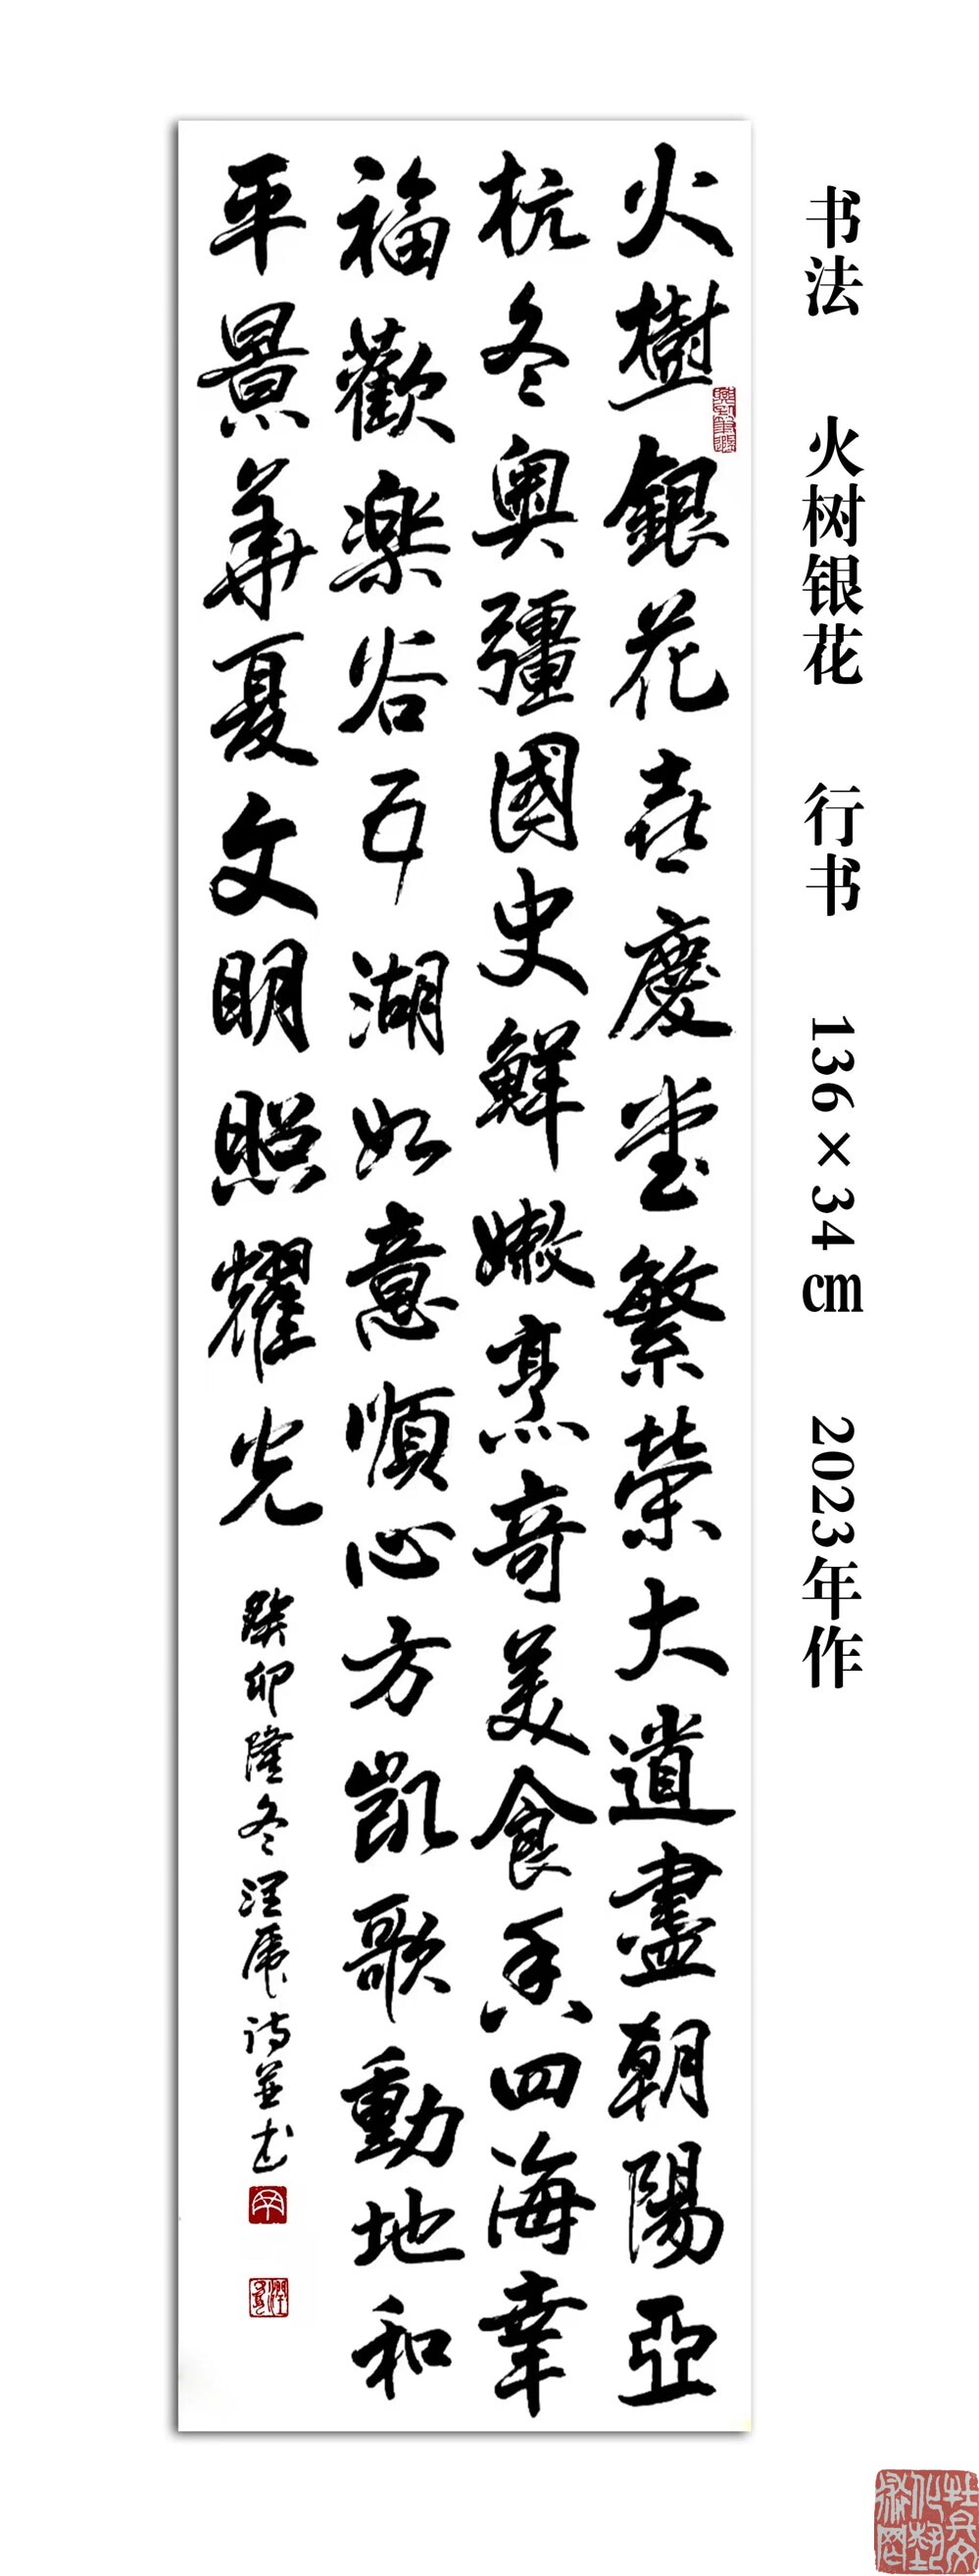 书法 火树银花 行书 136×34㎝ 2023年作
火樹銀花喜慶堂繁榮大道盡朝陽亞
杭冬奥疆國史鮮嫩烹奇美食香四海幸
福歡楽谷五湖如意順心方凱歌動地和
平景華夏文明照耀光
癸卯隆冬 虎诗並书